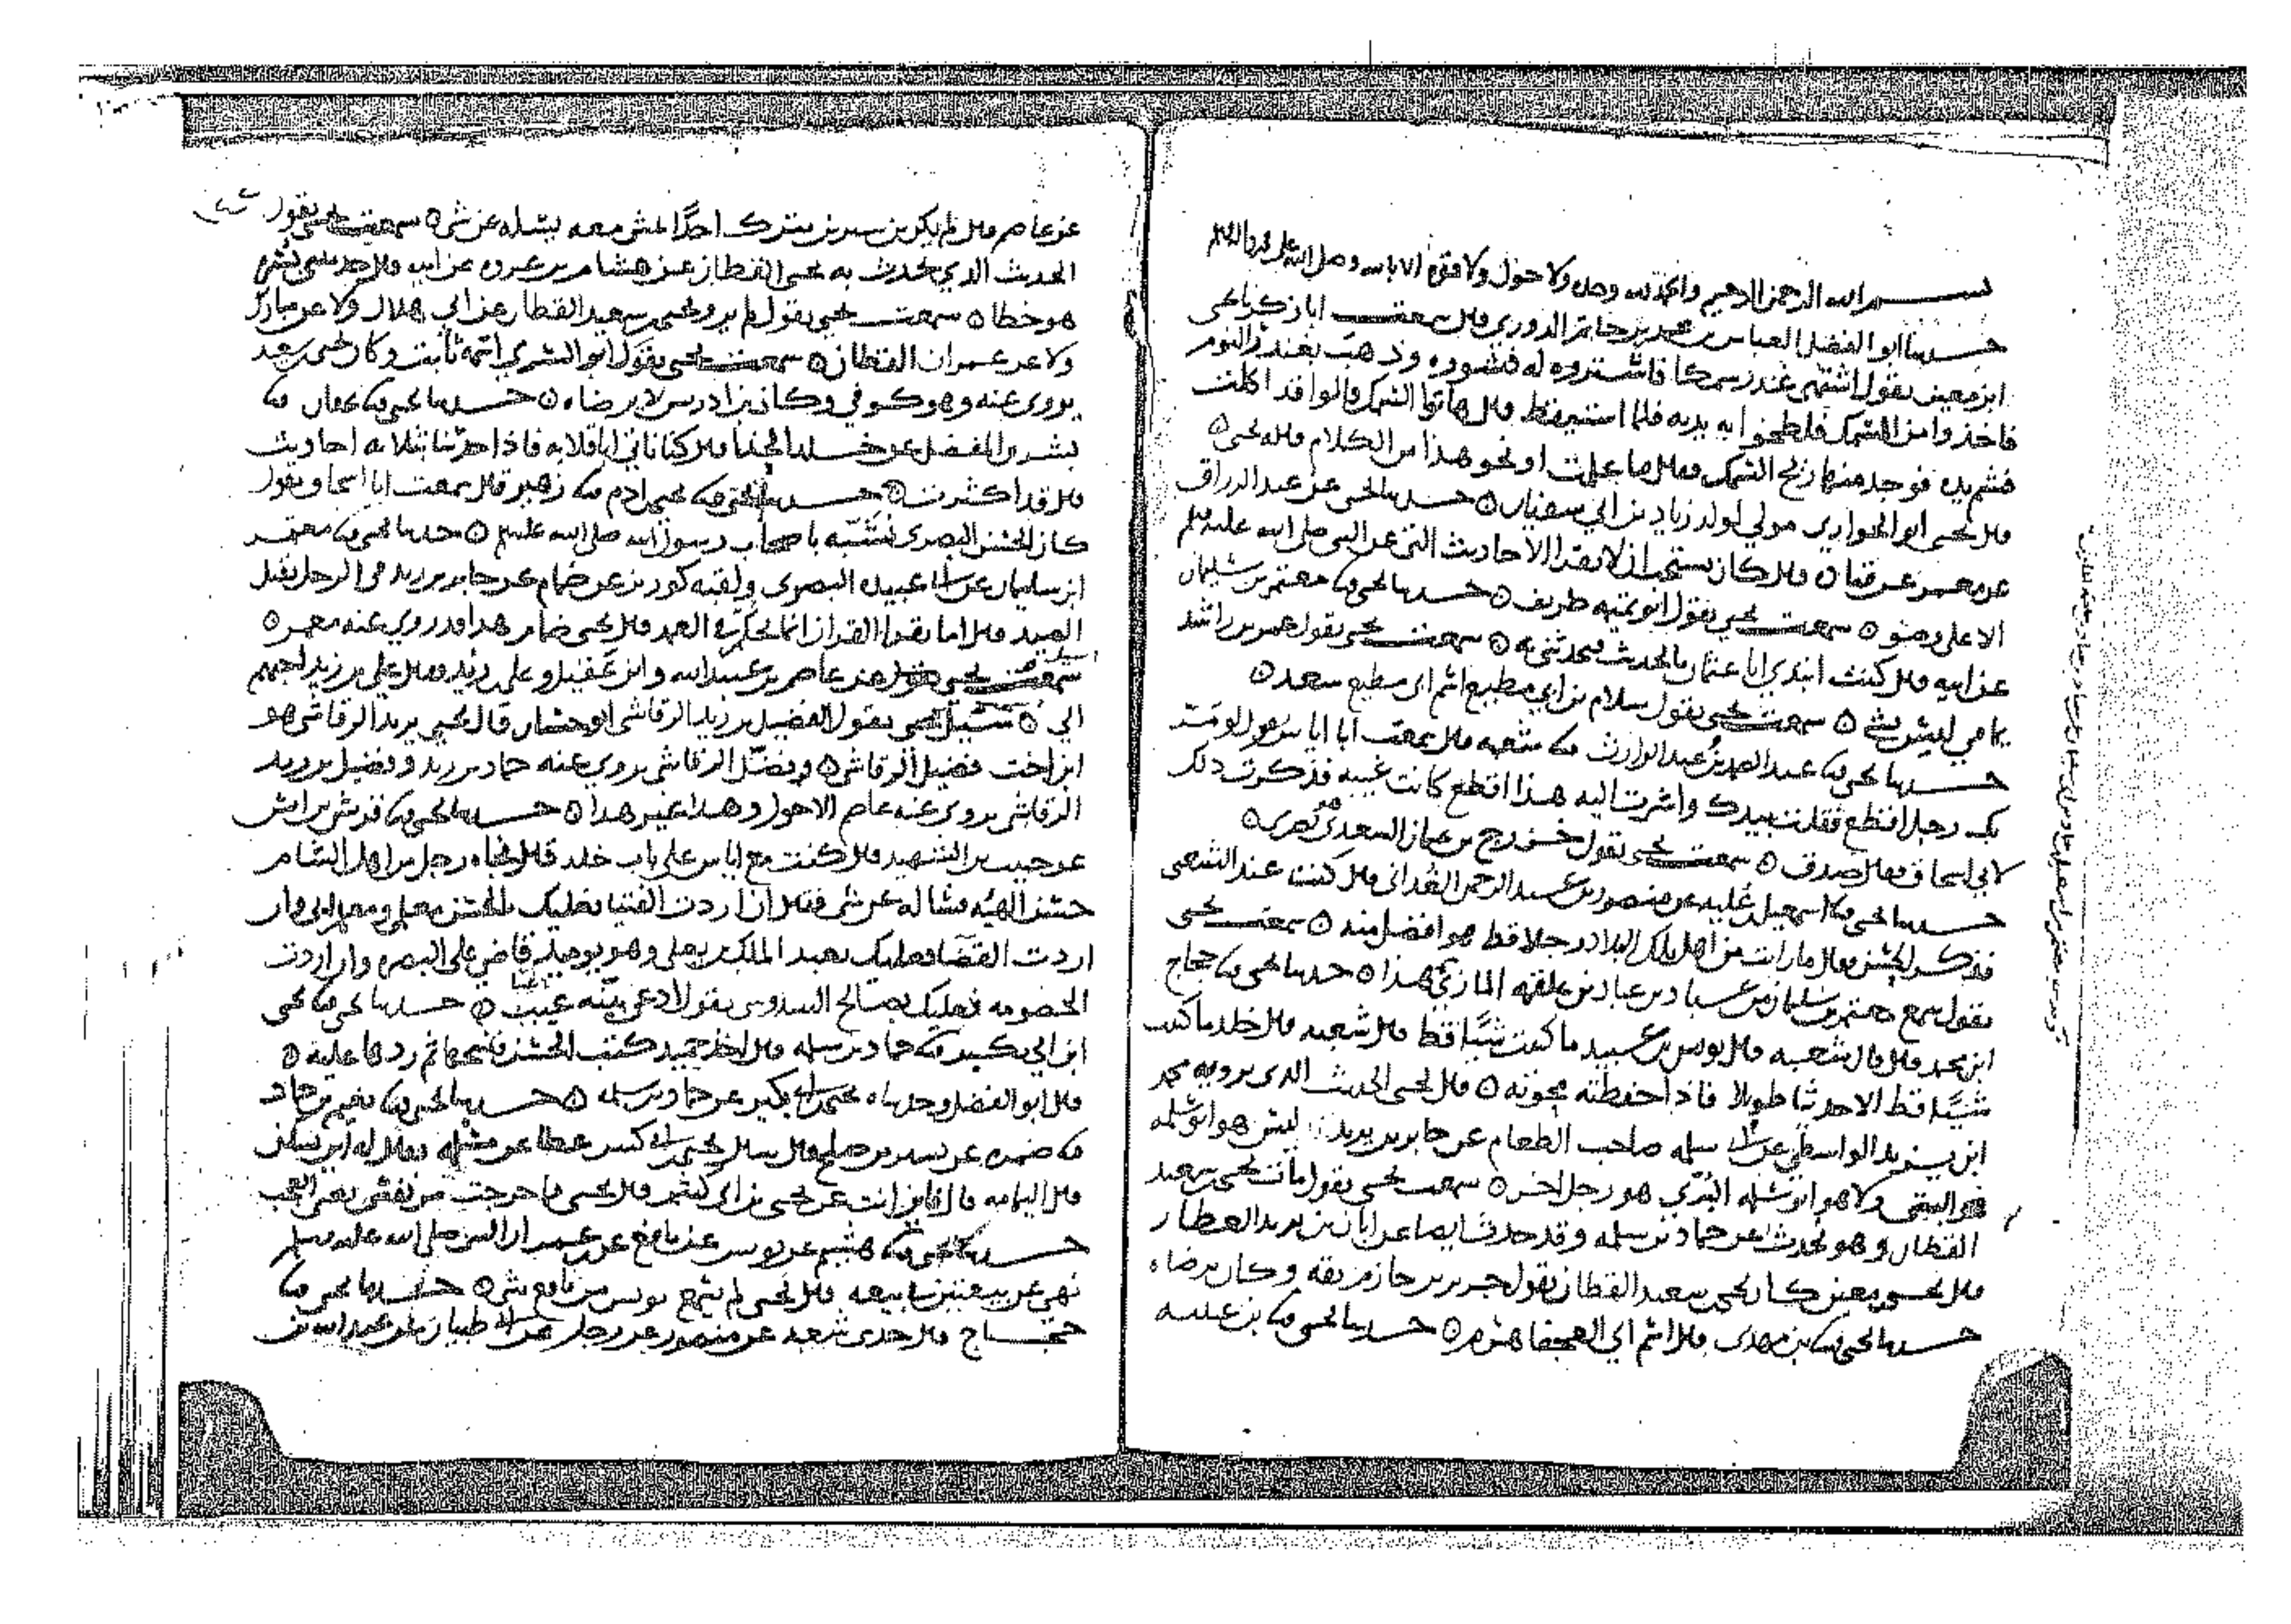 بسم الله الرحمن الرحيم والحمد لله وحده ولا حول ولا قوة الا بالله وصلى الله على محمد واله وسلم
حدثنا ابو الفضل العباس بن محمد بن حاتم الدوري قال سمعت ابا زكريا يحيى
ابن معين يقول اشتهى غندر سمكا فاشتروه له فشووه وذهب بغندر النوم
فاخذوا من السمك فلطخوا به يديه فلما استيقظ قال هاتوا السمك قالوا قد اكلت
فشم يده فوجد منها ريح السمك فقال ما علمت او نحو هذا من الكلام قاله يحيى
قال يحيى ابو الحواري مولى لولد زياد بن ابي سفيان حدثنا يحيى عن عبد الرزاق
عن معمر عن قتادة قال كان يستحب ان لا يقرا الاحاديث التي عن النبي صلى الله عليه وسلم
الا على وضو سمعت يحيى يقول ابو تميمه طريف حدثنا يحيى قال معتمر بن سليمان
عن ابيه قال كنت ابتدي ابا عثمان بالحديث فيحدثني به سمعت يحيى يقول عمر بن راشد
يمامي ليس بشي سمعت يحيى يقول سلام بن ابي مطيع اسم ابي مطيع سعد
حدثنا يحيى قال عبد الصمد بن عبد الوارث قال شعبه قال سمعت ابا اياس يقول لو مر
بك رجل اقطع فقلت بيدك واشرت اليه هذا اقطع كانت غيبه فذكرت ذلك
لابي اسحاق فقال صدق سمعت يحيى يقول خزرج بن عثمان السعدي بصري
حدثنا يحيى قال اسمعيل بن عليه عن منصور بن عبد الرحمن الغداني قال كنت عند الشعبي
فذكر الحسن فقال ما رايت من اهل تلك البلاد رجلا قط هو افضل منه سمعت يحيى
يقول سمع معتمر بن سليمان من عباد بن عباد بن علقمه المازني هذا حدثنا يحيى قال حجاج
ابن محمد قال قال شعبه قال يونس بن عبيد ما كتبت شيا قط قال شعبه قال خلد ما كتبت
شيا قط الا حديثا طويلا فاذا حفظته محوته قال يحيى الحديث الذي يرويه محمد
ابن يزيد الواسطي عن ابي سلمه صاحب الطعام عن جابر بن يزيد ليس هو ابو سلمه
البتي ولا هو ابو سلمه البري هو رجل اخر سمعت يحيى يقول مات يحيى بن سعيد
القطان وهو يحدث عن حماد بن سلمه وقد حدث ايضا عن ابان بن يزيد العطار
قال يحيى بن معين كان يحيى بن سعيد القطان يقول جرير بن حازم ثقه وكان يرضاه
حدثنا يحيى قال ابن مهدي قال اسم ابي العجفا هرم حدثنا يحيى قال ابن عليه
عن عاصم قال لم يكن ابن سيرين يترك احدا يمشي معه يسله عن شي سمعت يحيى يقول
الحديث الذي يحدث به يحيى القطان عن هشام بن عروه عن ابيه قال
هو خطا سمعت يحيى يقول لم يرو يحيى بن سعيد القطان عن ابي هلال ولا عن مبارك
ولا عن عمران القطان سمعت يحيى يقول ابو السري اسمه ثابت وكان يحيى بن سعيد
يروي عنه وهو كوفي وكان ابن ادريس لا يرضاه حدثنا يحيى قال عفان قال
بشر بن المفضل عن خلد الحذا قال كنا ناتي ابا قلابه فاذا حدثنا بثلاثه احاديث
قال قد اكثرت حدثنا يحيى قال يحيى بن ادم قال زهير قال سمعت ابا اسحاق يقول
كان الحسن البصري يشبه باصحاب رسول الله صلى الله عليه وسلم حدثنا يحيى قال معتمر
ابن سليمان عن ابي عبيده البصري ولقبه كورين عن ضمام عن جابر بن زيد في الرجل يقبل
الصيد قال اما يقرا القران قال يحيى ضمام هذا قد روى عنه معمر
سمعت يحيى عاصم بن عبيد الله وابن عقيل وعلي بن زيد فقال علي بن زيد احبهم
الي سمعت يحيى يقول الفضيل بن زيد الرقاشي ابو حسان قال يحيى يزيد الرقاشي هو
ابن اخت فضيل الرقاشي وفضيل الرقاشي يروي عنه حماد بن زيد وفضيل بن زيد
الرقاشي يروي عنه عاصم الاحول وهذا غير هذا حدثنا يحيى قال قريش بن انس
عن حبيب بن الشهيد قال كنت مع اياس على باب خلد قال فجاه رجل من اهل الشام
حسن الهيه فساله عن شي فقال ان اردت الفتيا فعليك بالحسن معلمي ومعلم ابي وان
اردت القضا فعليك بعبد الملك بن يعلى وهو يوميذ قاضي على البصره وان اردت
الخصومه فعليك بصالح السدوسي حدثنا يحيى قال يحيى
ابن ابي بكير قال حماد بن سلمه قال اخذ حميد كتب الحسن فنسخها ثم ردها عليه
قال ابو الفضل وحدثناه يحيى بن ابي بكير عن حماد بن سلمه حدثنا يحيى قال نعيم بن حماد
قال ضمره عن قال سال يحيى بن ابي كثير عطا عن مسله فقال له اين تسكن
قال اليمامه قال فاين انت عن يحيى بن ابي كثير قال يحيى فما خرجت من نفسي بعض العجب
حدثنا يحيى قال هشيم عن يونس عن نافع عن ابن عمر ان النبي صلى الله عليه وسلم
نهى عن بيعتين في بيعه قال يحيى لم يسمع يونس من نافع شي حدثنا يحيى قال
حجاج قال حدثني شعبه عن منصور عن رجل عن ابي ظبيان قال عبد الله بن